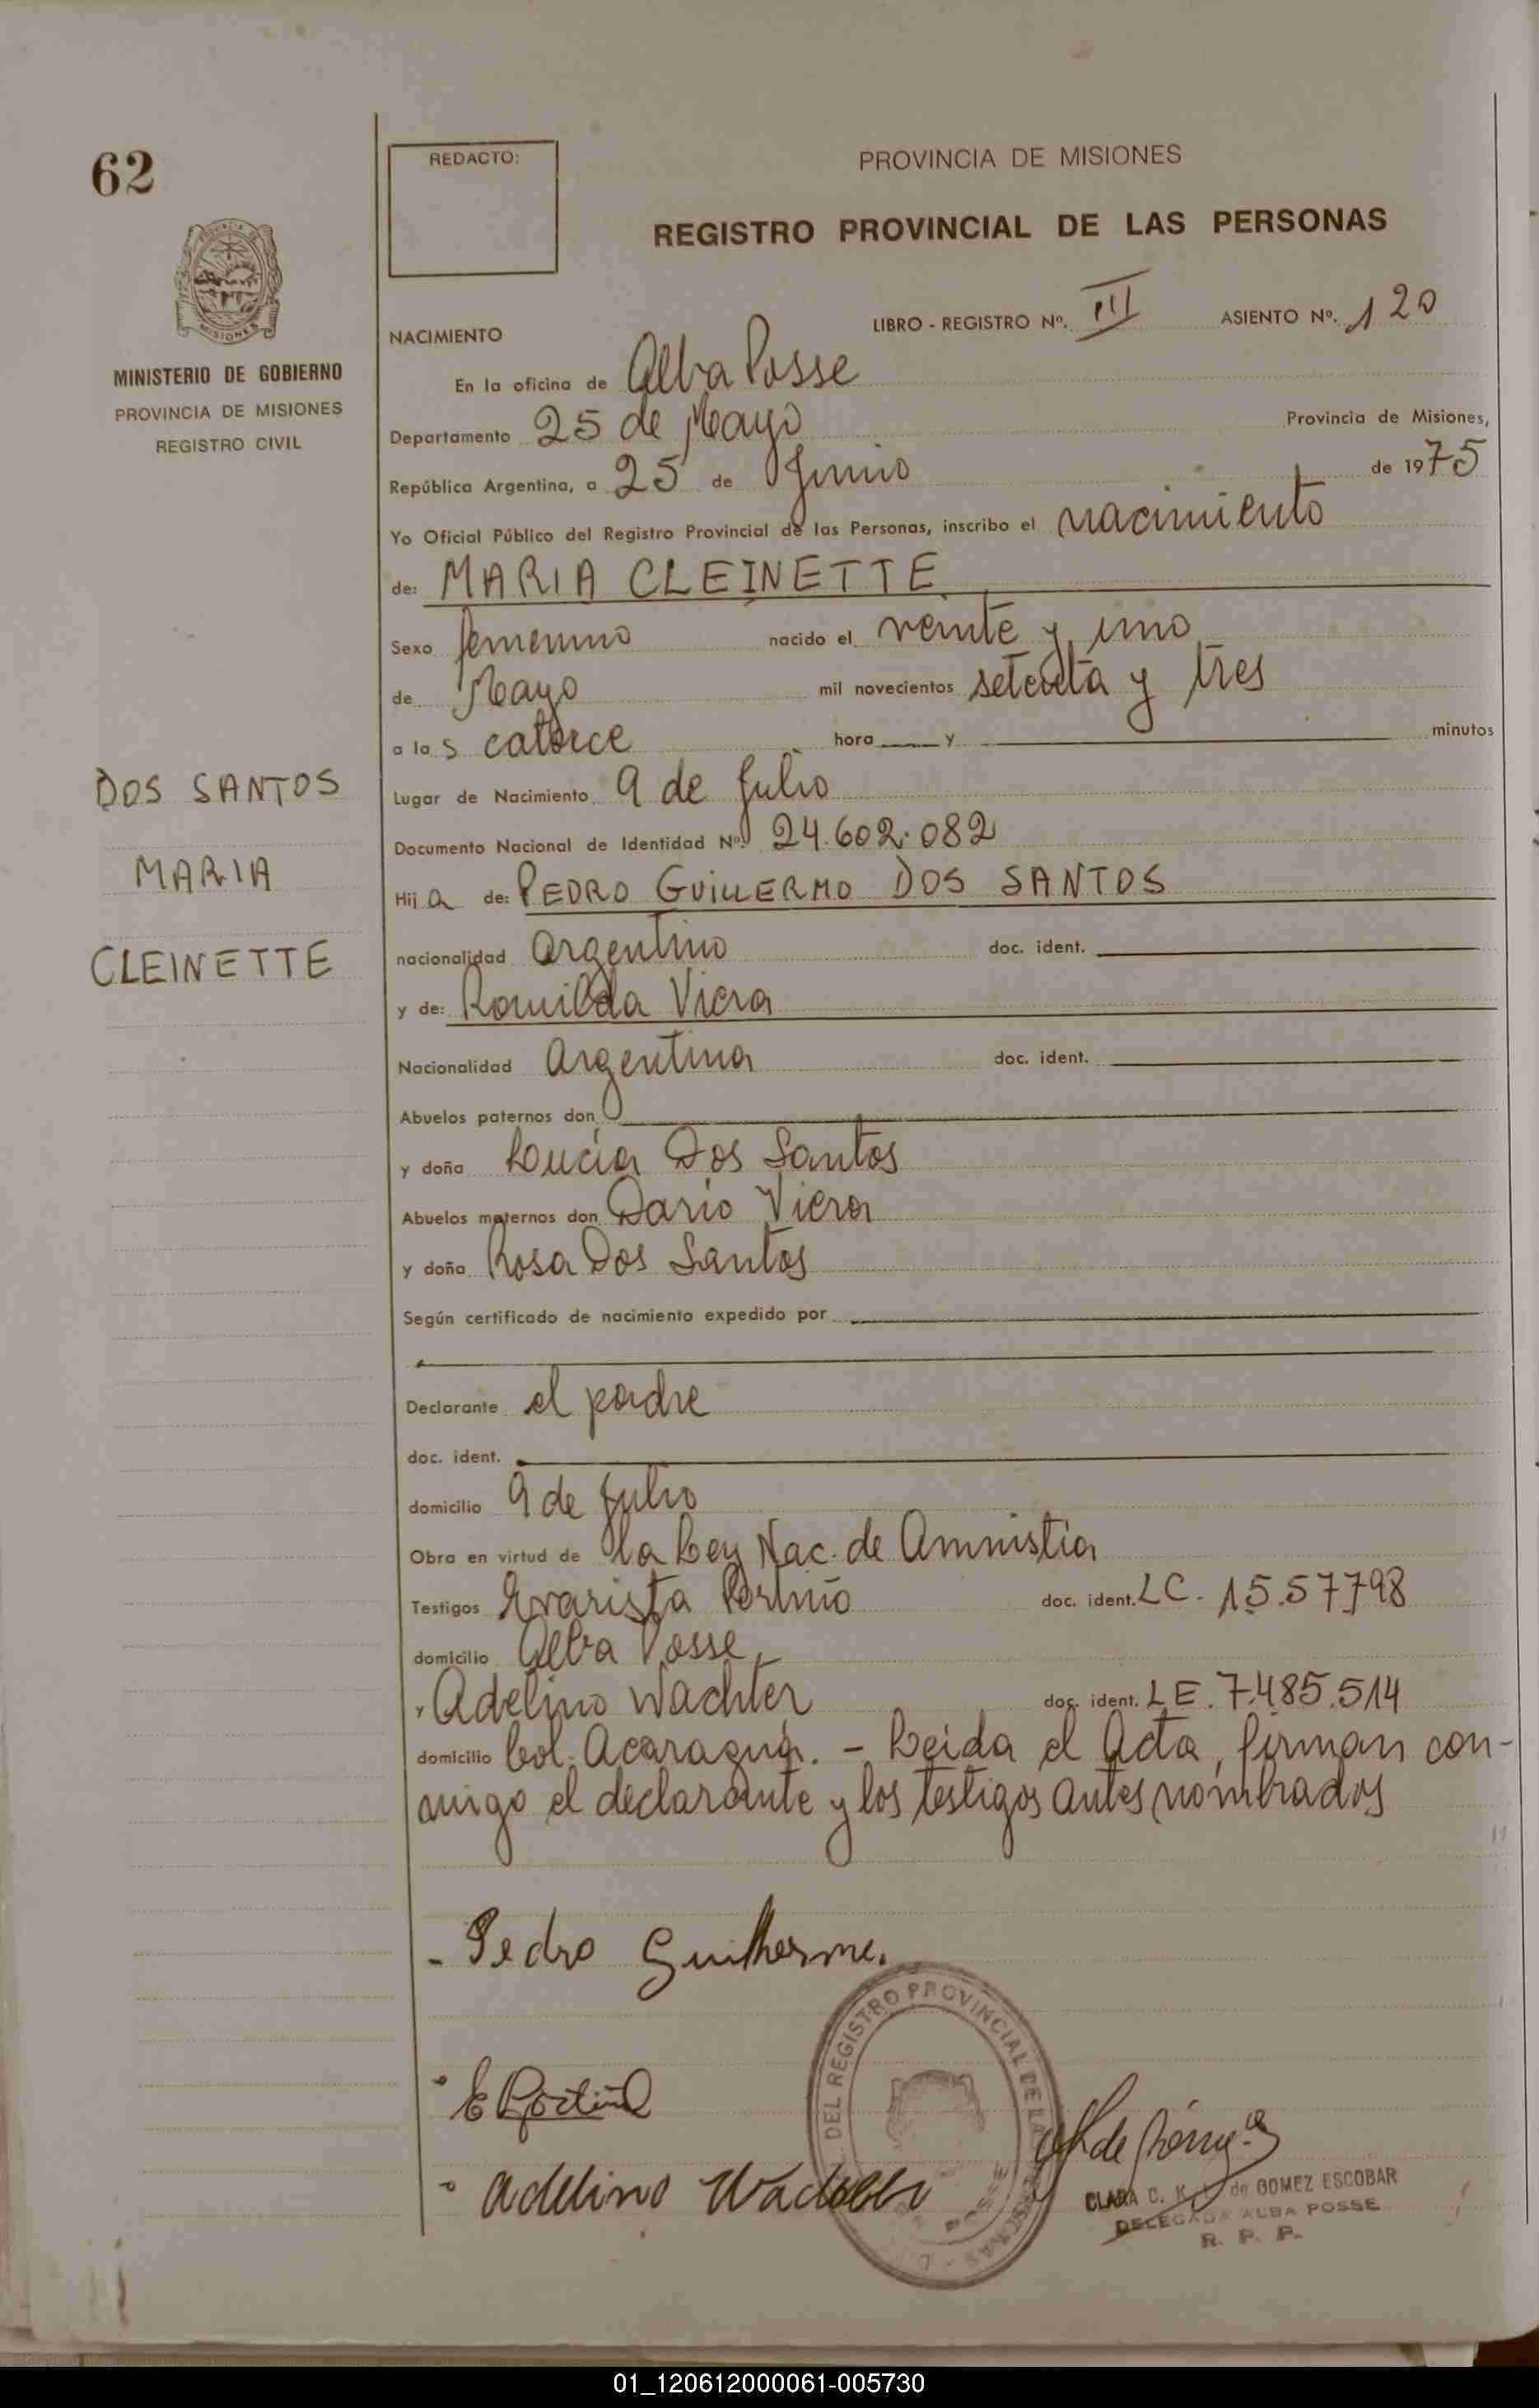 62
REDACTO:
PROVINCIA DE MISIONES
REGISTRO PROVINCIAL DE LAS PERSONAS
MISIONES
MINISTERIO DE GOBIERNO
PROVINCIA DE MISIONES
REGISTRO CIVIL
NACIMIENTO
LIBRO - REGISTRO Nº. III ASIENTO Nº. 120
En la oficina de Alba Posse
Departamento 25 de Mayo Provincia de Misiones,
República Argentina, a 25 de Junio de 1975
Yo Oficial Público del Registro Provincial de las Personas, inscribo el nacimiento
de: MARIA CLEINETTE
Sexo femenino nacido el veinte y uno
de Mayo mil novecientos setenta y tres
a la s catorce hora y minutos
Lugar de Nacimiento 9 de Julio
Documento Nacional de Identidad Nº. 24.602.082
Hij a de: PEDRO GUILLERMO DOS SANTOS
nacionalidad argentino doc. ident.
y de: Romilda Viera
Nacionalidad argentina doc. ident.
Abuelos paternos don
y doña Lucia Dos Santos
Abuelos maternos don Dario Viera
y doña Rosa Dos Santos
Según certificado de nacimiento expedido por
Declarante el padre
doc. ident.
domicilio 9 de Julio
Obra en virtud de la Ley Nac. de Amnistia
Testigos Evarista Portiño doc. ident. LC - 15.57798
domicilio Alba Posse
y Adelino Wachter doc. ident. LE. 7.485.514
domicilio Col. Acaragua. - Leida el Acta, firman con-
migo el declarante y los testigos antes nombrados
DOS SANTOS
MARIA
CLEINETTE
- Pedro Guilherme.
E Portiño
Adelino Wachter
DEL REGISTRO PROVINCIAL DE LAS PERSONAS
CLARA C. K. de GOMEZ ESCOBAR
DELEGADA ALBA POSSE
R. P. P.
01_120612000061-005730